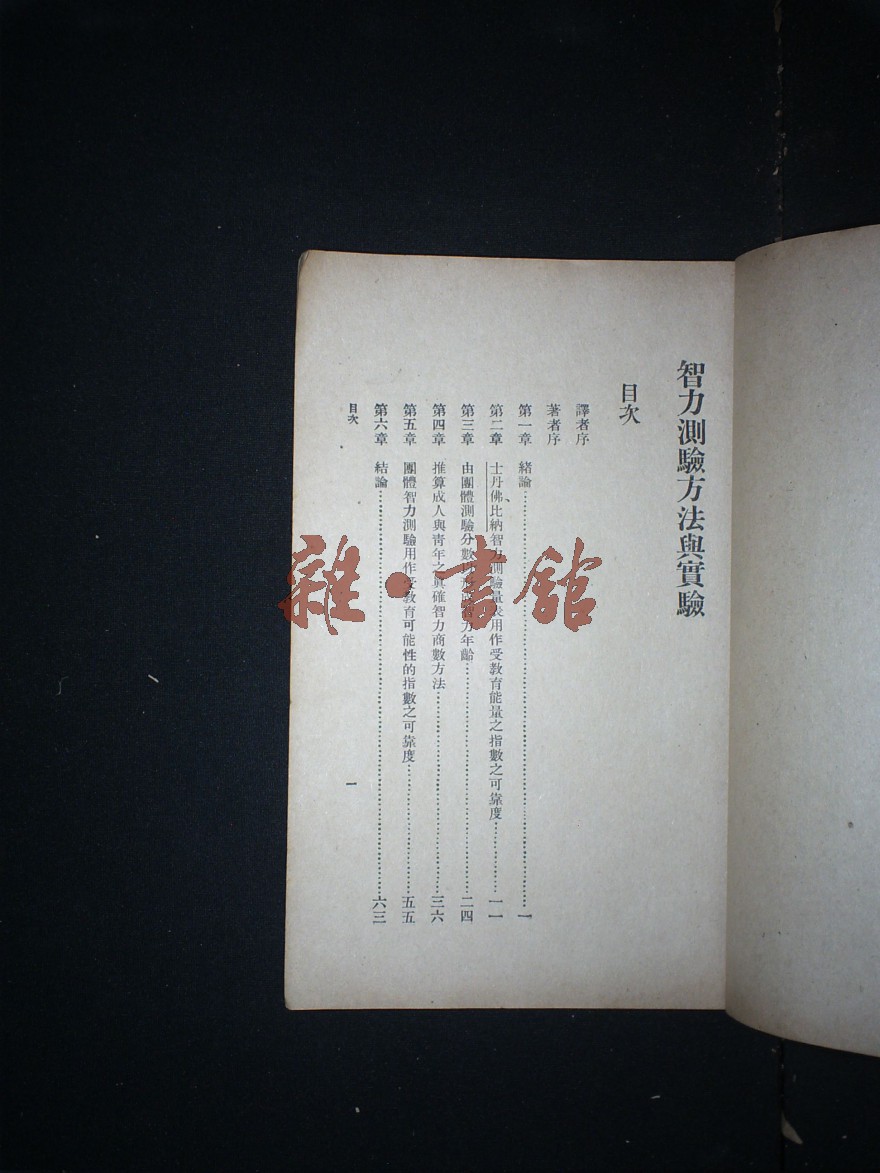 智力測驗方法與實驗
目次
譯者序
著者序
第一章 緒論…………一
第二章 士丹佛、比納智力測驗量表用作受教育能量之指數之可靠度…………一一
第三章 由團體測驗分數 智力年齡…………二四
第四章 推算成人與靑年之眞確智力商數方法…………三六
第五章 團體智力測驗用作受教育可能性的指數之可靠度…………五五
第六章 結論…………六三
目次 一
雜·書館